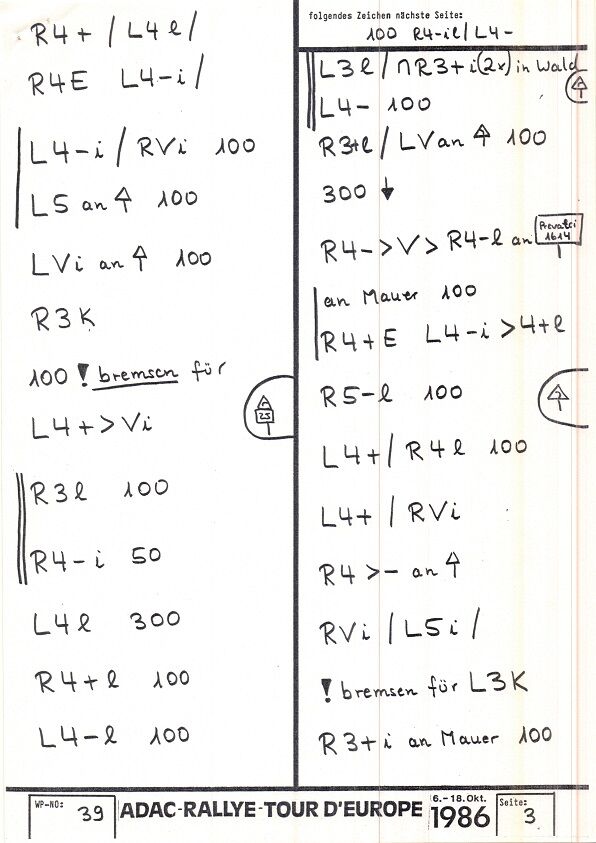 R4+ / L4l /
R4E L4-i /
L4-i / RVi 100
L5 an ↑ 100
LVi an ↑ 100
R3K
100 ! bremsen für
L4+>Vi
23
R3l 100
R4-i 50
L4l 300
R4+l 100
L4-l 100
folgendes Zeichen nächste Seite:
100 R4-il / L4-
L3l / ∩R3+i(2x) in Wald
L4- 100
R3+l / LVan ↑ 100
300 ↓
R4->V> R4-l an
1614
an Mauer 100
R4+E L4-i >4+l
R5-l 100
L4+ / R4l 100
L4+ / RVi
R4>- an ↑
RVi / L5i /
! bremsen für L3K
R3+i an Mauer 100
WP-NO: 39
ADAC-RALLYE-TOUR D'EUROPE
6.-18. Okt.
1986
Seite: 3